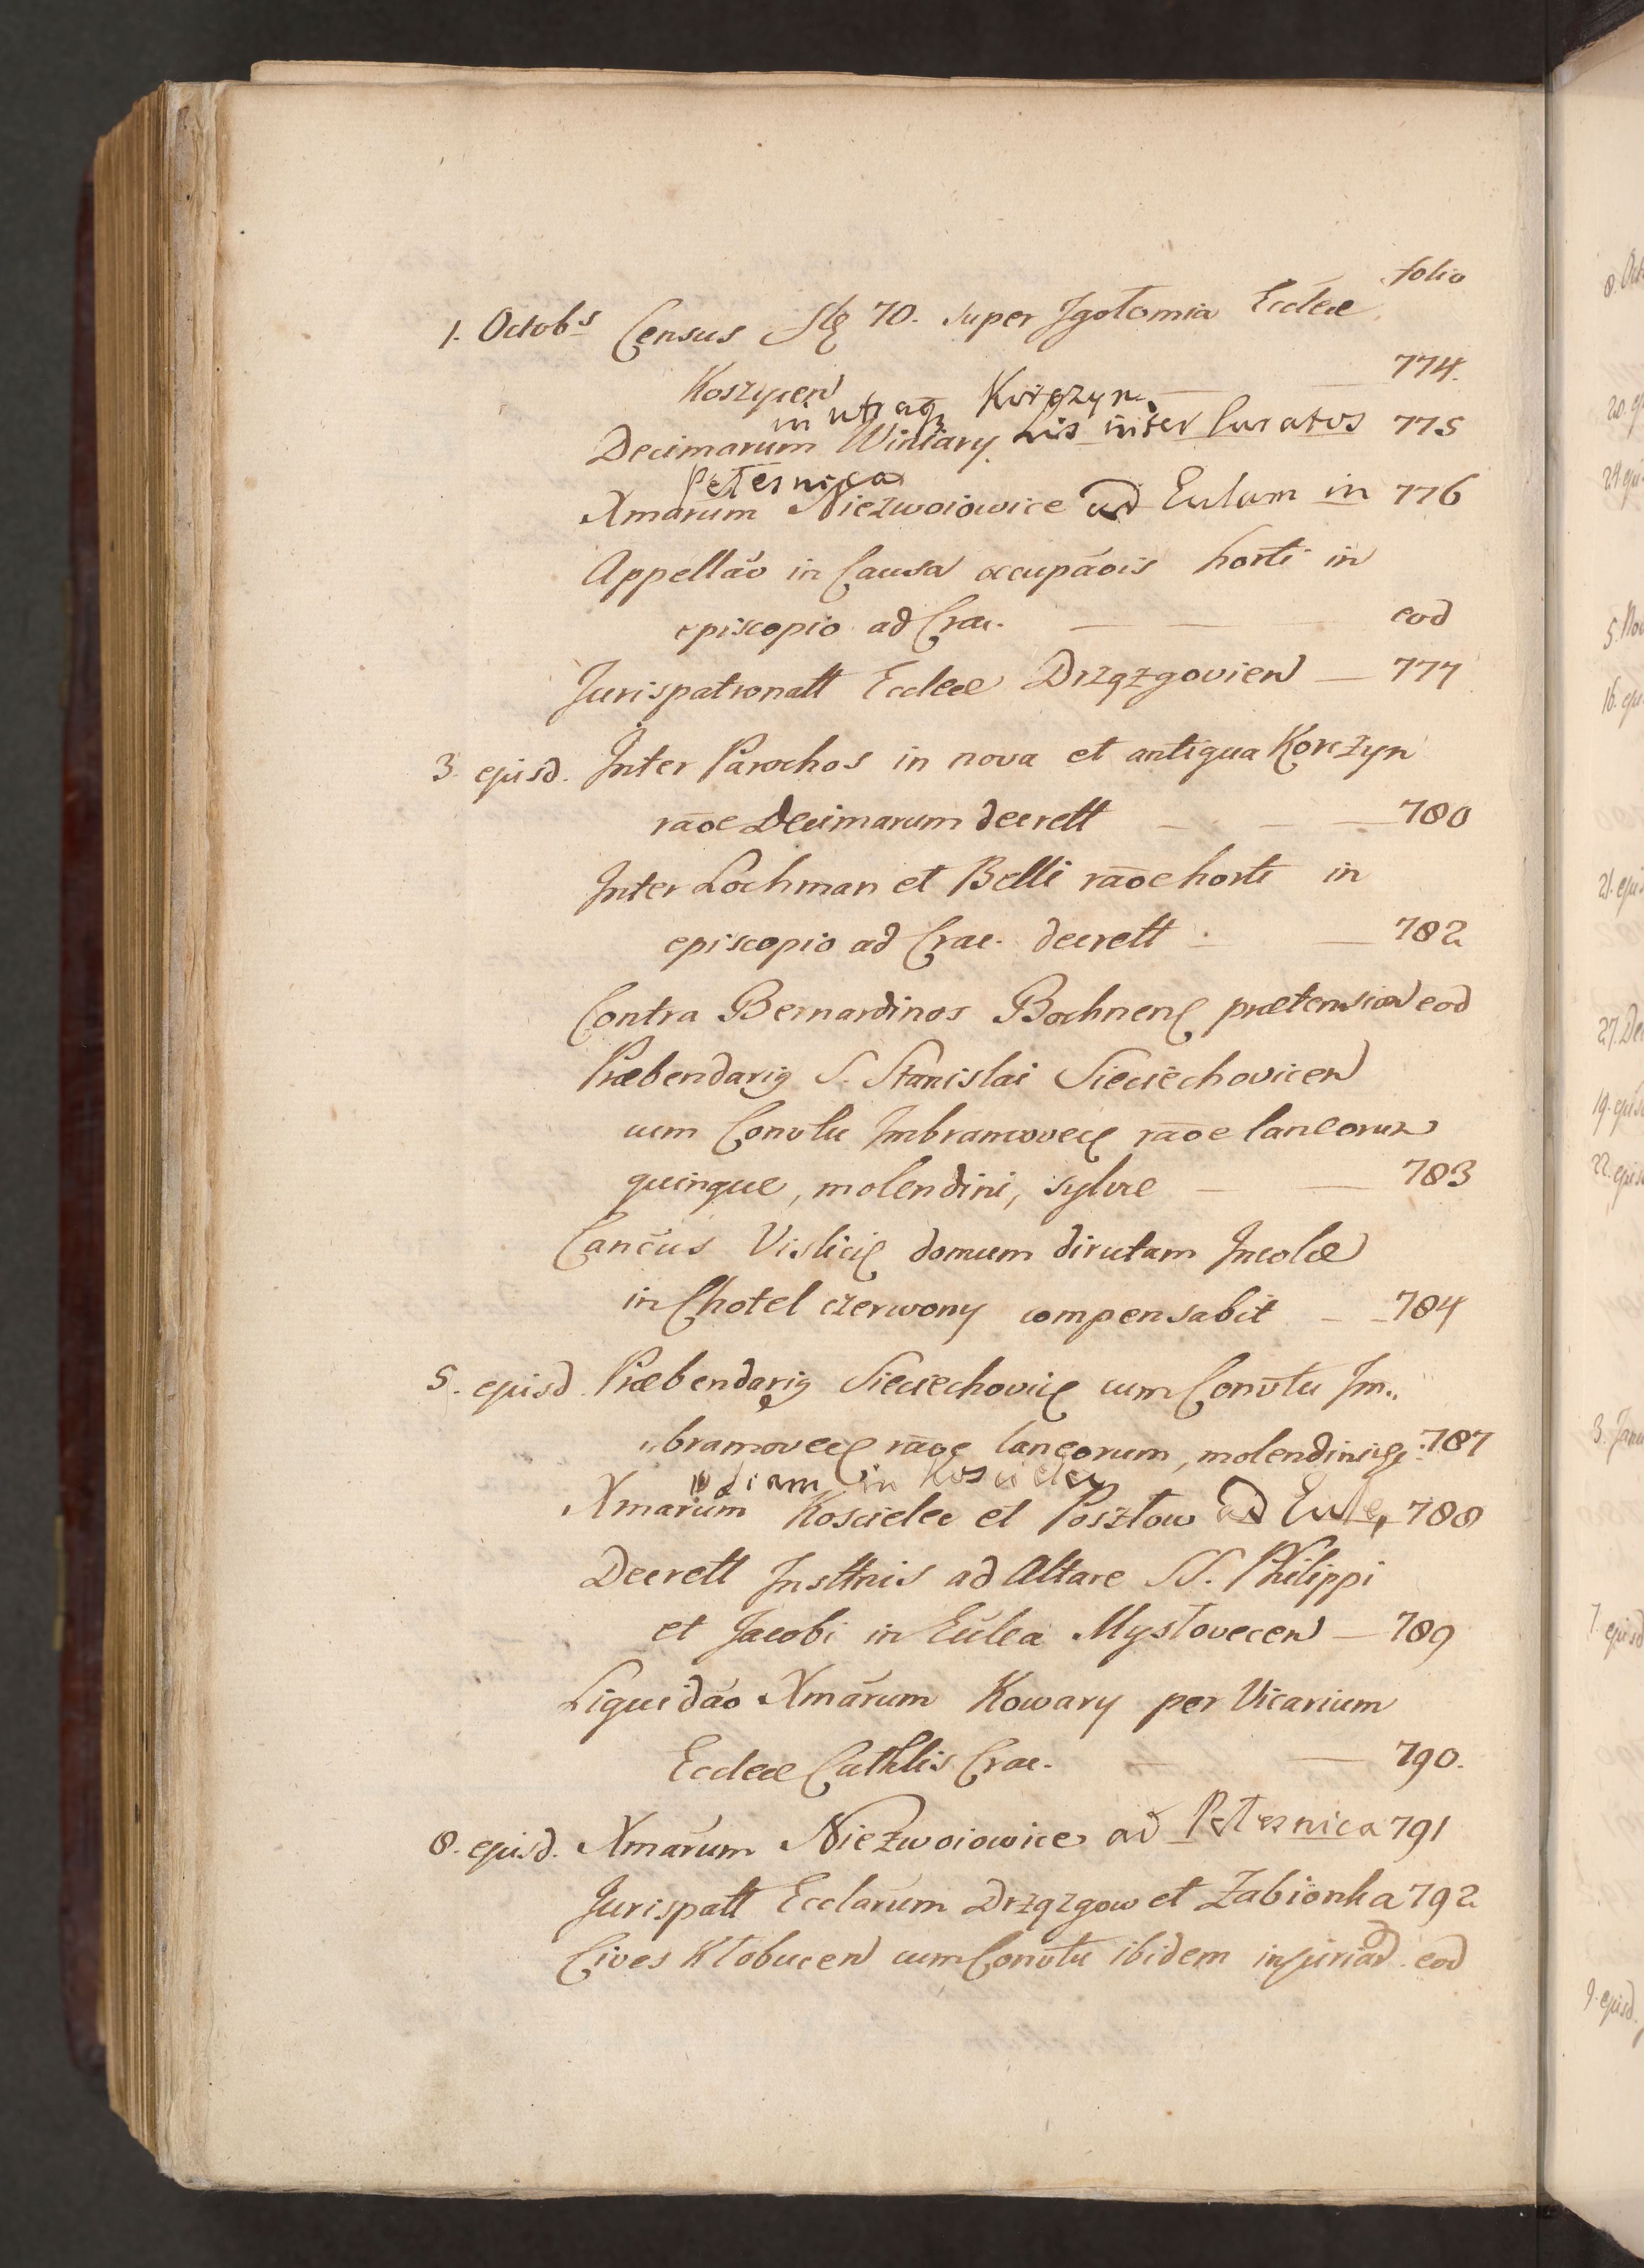 folio
1. Octobs Census 70. super Jgołomia Eccleæ
Koszycen 774.
in utraq Korczyn.
Decimarum Winiary. Lis inter Curatos 775
Petesnica
Xmarum Niezwoiowice ad Eulam in 776
Appellao in Causa occupaois horti in
episcopio ad Crac. eod
Jurispatronatt Eccleæ Drzązgovien 777
3. ejusd. Inter Parochos in nova et antiqua Korczyn
raoe Decimarum decrett 780
Inter Lochman et Belli raoe horti in
episcopio ad Crac. decrett 782
Contra Bernardinos Bochnen prætensio eod
Præbendarig S. Stanislai Sieciechovicen
cum Convtu Imbramovec raoe laneorum
quinque, molendini, sylvæ 783
Cancus Vislici domum dirutam Incolæ
in Chotel czerwony compensabit 784
5. ejusd. Præbendarig Sieciechovic cum Convtu Im„
„bramovec raoe laneorum, molendini 787
in Koscielec
Xmarum Koscielec et Posztow ad Eule, 788
Decrett Insttnis ad Altare SS. Philippi
et Jacobi in Eulea Mysłovecen 789
Liquidao Xmarum Kowary per Vicarium
Eccleæ Cathlis Crac. 790.
8. ejusd. Xmarum Niezwoiowice ad Petesnica 791
Jurispatt Ecclarum Drzązgow et Żabionka 792
Cives Kłobucen cum Convtu ibidem injuriad eod